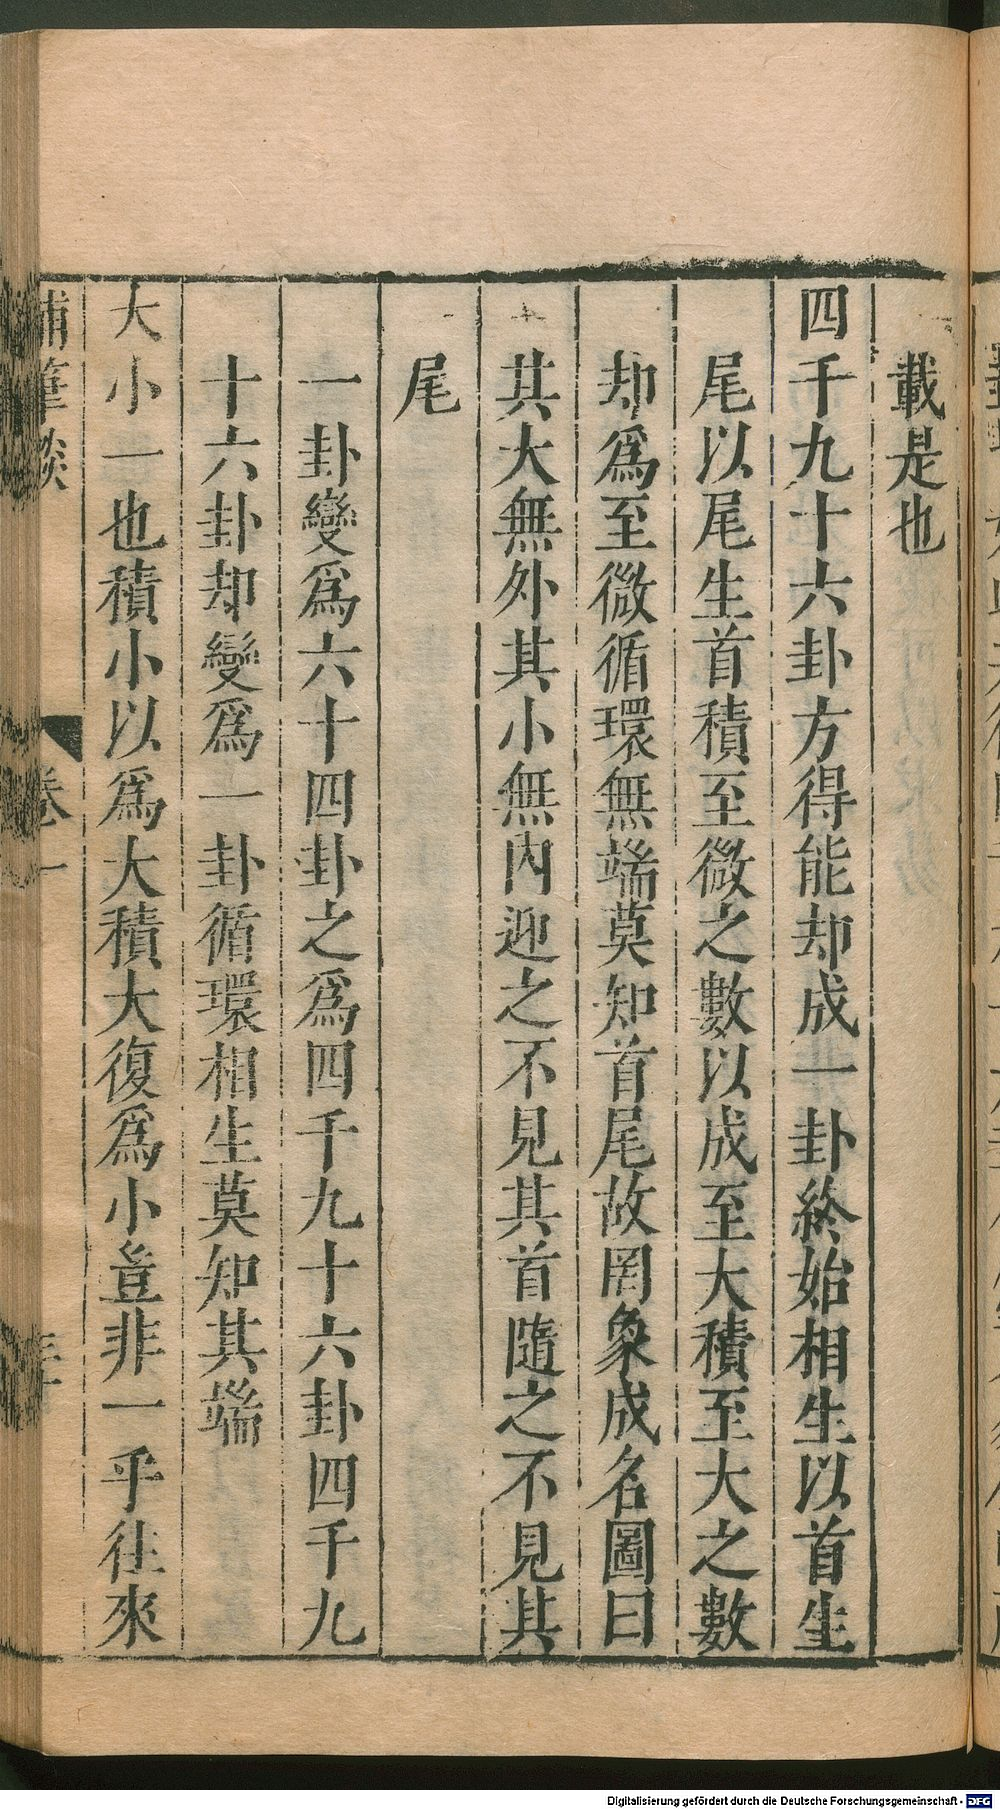 載是也
四千九十六卦方得能却成一卦終始相生以首生
尾以尾生首積至微之數以成至大積至大之數
却爲至微循環無端莫知首尾故罔象成名圖曰
其大無外其小無内迎之不見其首隨之不見其
尾
一卦變爲六十四卦之爲四千九十六卦四千九
十六卦却變爲一卦循環相生莫知其端
大小一也積小以爲大積大復爲小豈非一乎往來
補筆談
卷一
Digitalisierung gefördert durch die Deutsche Forschungsgemeinschaft - DFG